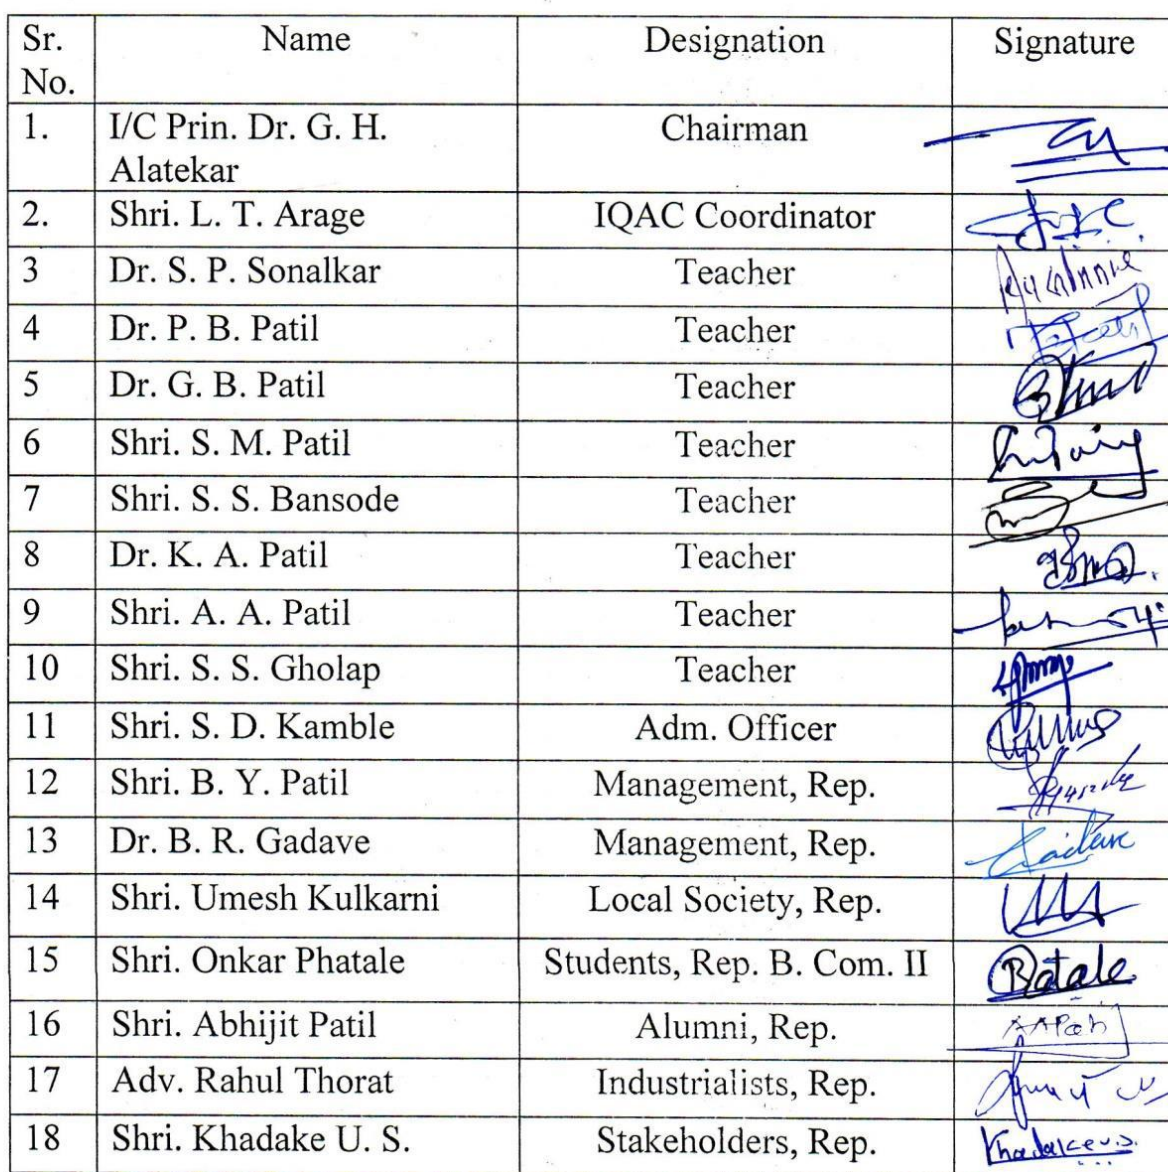 Sr. No. Name Designation Signature
1. I/C Prin. Dr. G. H. Alatekar Chairman
2. Shri. L. T. Arage IQAC Coordinator
3 Dr. S. P. Sonalkar Teacher
4 Dr. P. B. Patil Teacher
5 Dr. G. B. Patil Teacher
6 Shri. S. M. Patil Teacher
7 Shri. S. S. Bansode Teacher
8 Dr. K. A. Patil Teacher
9 Shri. A. A. Patil Teacher
10 Shri. S. S. Gholap Teacher
11 Shri. S. D. Kamble Adm. Officer
12 Shri. B. Y. Patil Management, Rep.
13 Dr. B. R. Gadave Management, Rep.
14 Shri. Umesh Kulkarni Local Society, Rep.
15 Shri. Onkar Phatale Students, Rep. B. Com. II Batale
16 Shri. Abhijit Patil Alumni, Rep.
17 Adv. Rahul Thorat Industrialists, Rep.
18 Shri. Khadake U. S. Stakeholders, Rep. Khadake U.S.